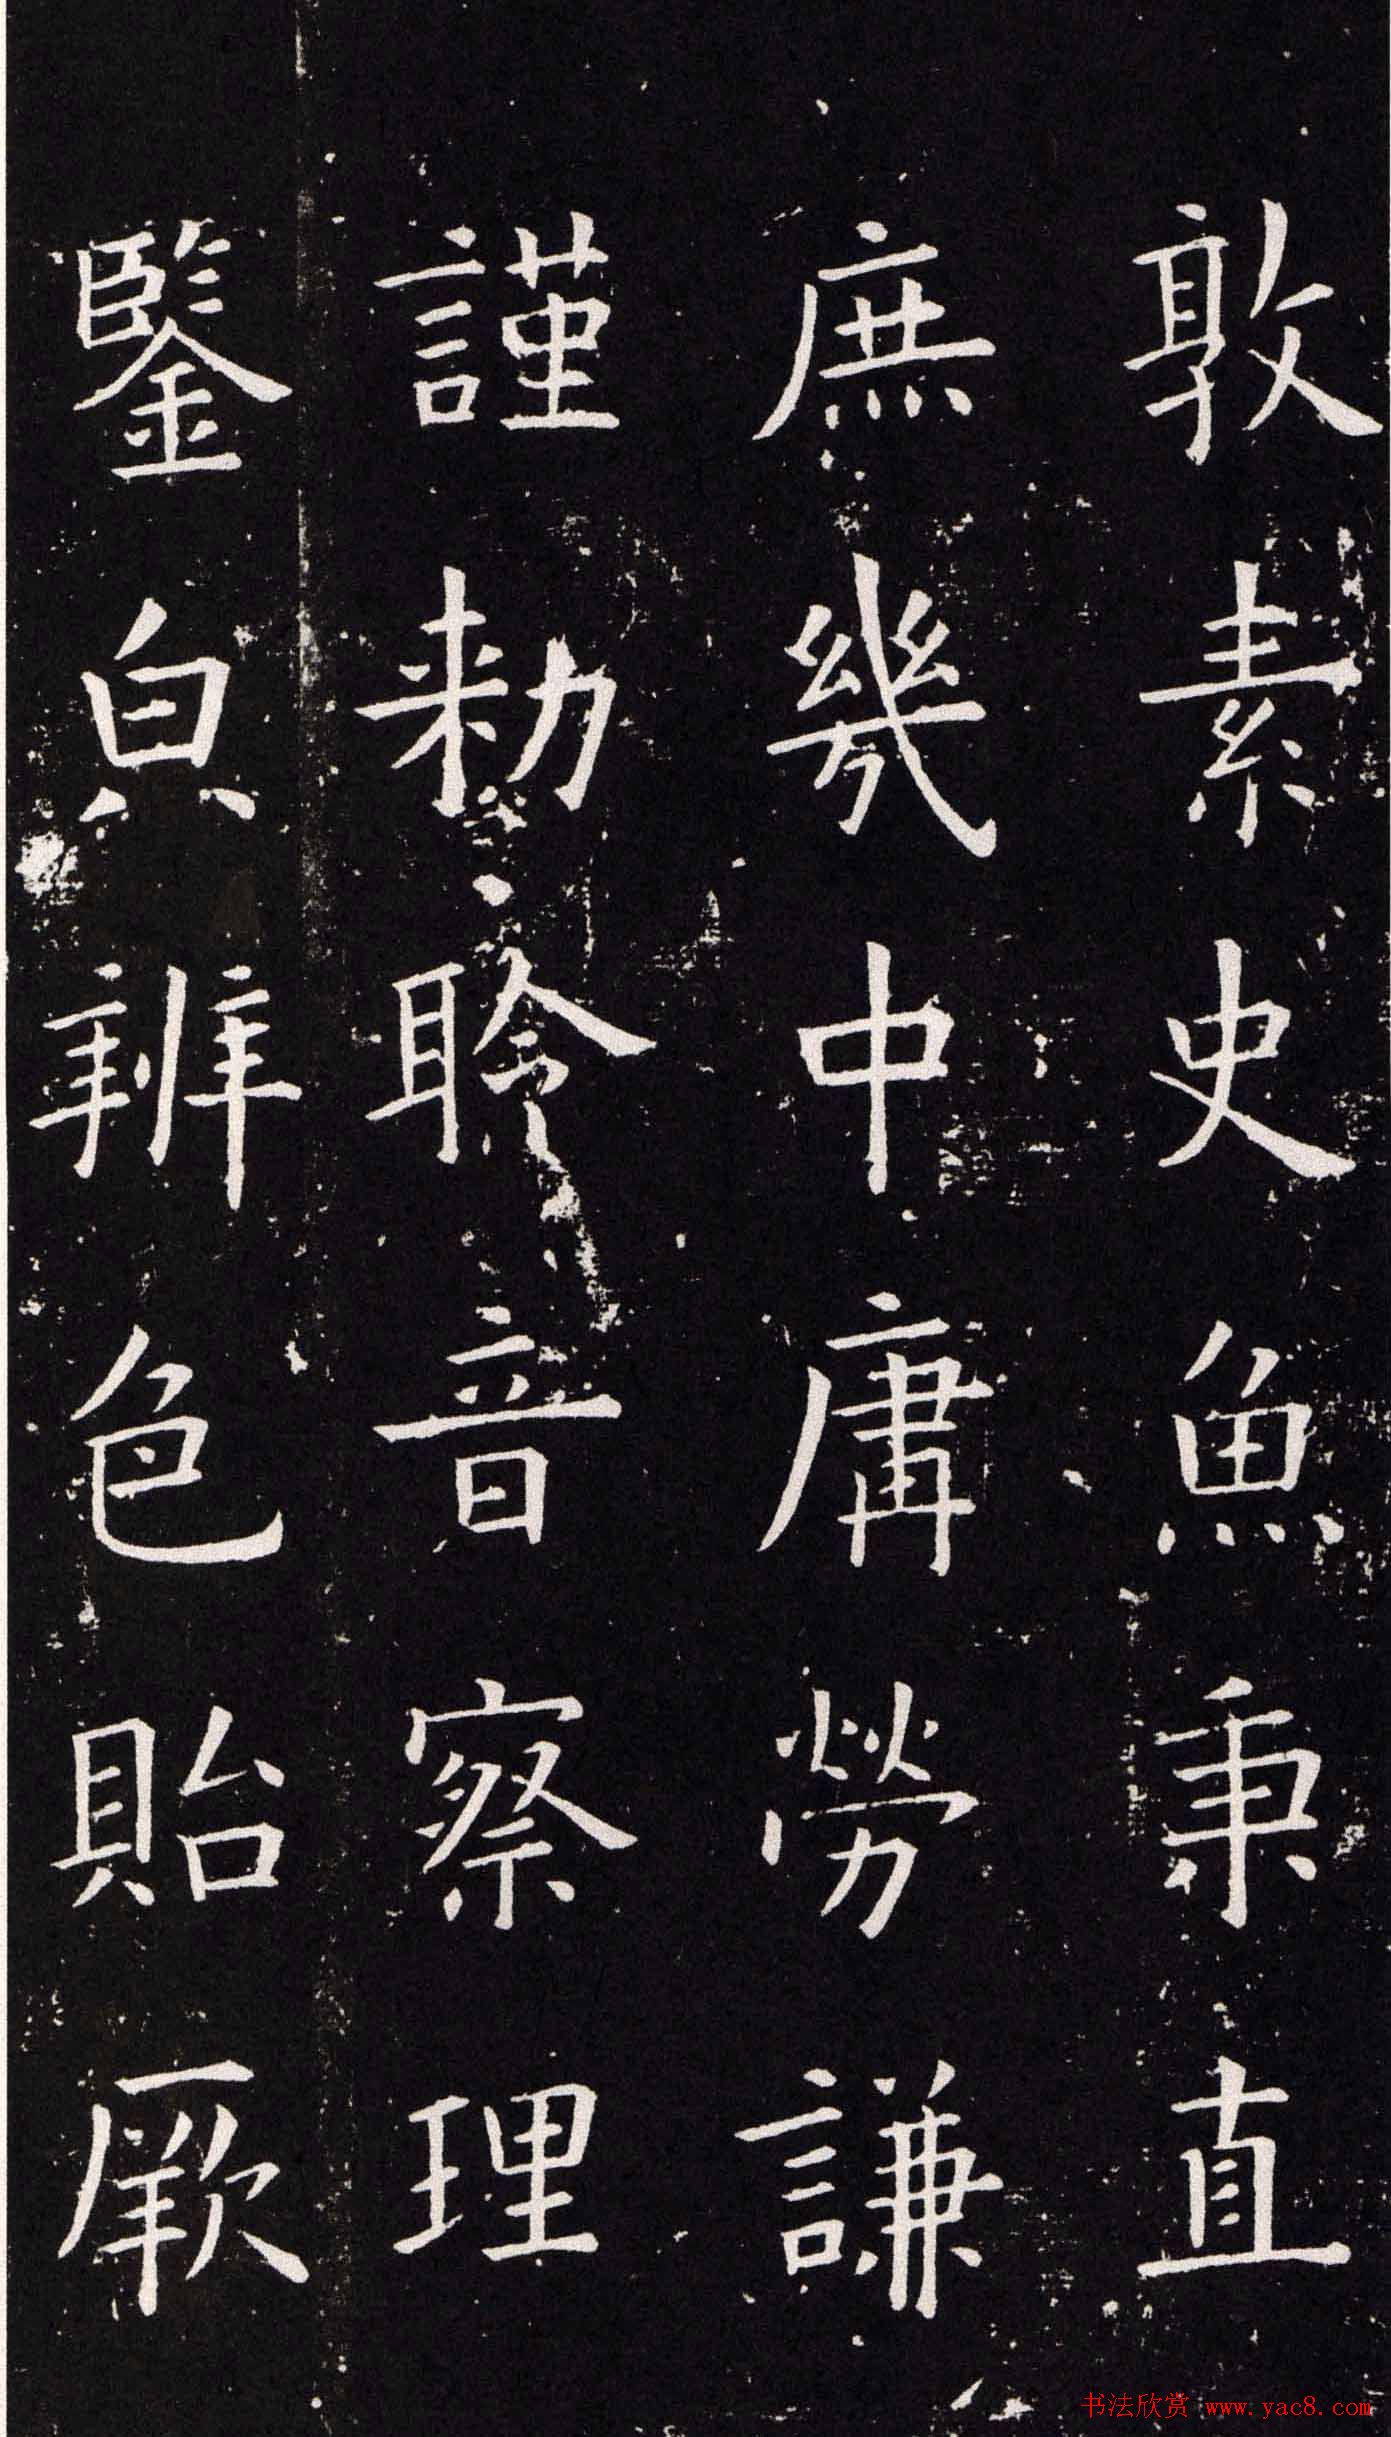 敦素史魚秉直
庶幾中庸勞謙
謹勅聆音察理
鑒皃辨色貽厥
书法欣赏 www.yac8.com